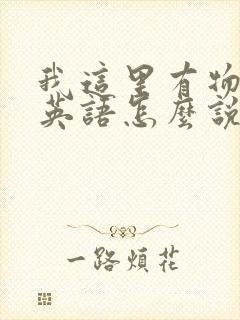 我這里有物
英語怎麼說
一路煩花